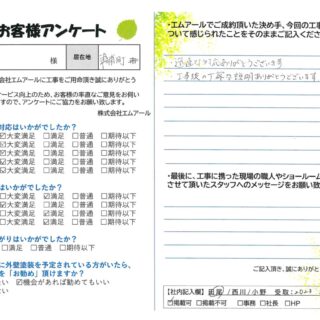 お客様アンケート
様
居住地
株式会社エムアールに工事をご用命頂き誠にありがとう
サービス向上のため、お客様の率直なご意見をお伺い
ますので、アンケートにご協力をお願い致します。
株式会社エムアール
対応はいかがでしたか?
☑大変満足 □満足 □普通 □期待以下
☑大変満足 □満足 □普通 □期待以下
☑大変満足 □満足 □普通 □期待以下
はいかがでしたか?
☑大変満足 □満足 □普通 □期待以下
☑大変満足 □満足 □普通 □期待以下
☑大変満足 □満足 □普通 □期待以下
☑大変満足 □満足 □普通 □期待以下
がりはいかがでしたか?
足 □満足 □普通 □期待以下
に外壁塗装を予定されている方がいたら、
を「お勧め」頂けますか?
たい ☑機会があれば勧めてもいい
ない
・エムアールでご成約頂いた決め手、今回の工事
ついて感じられたことをそのままご記入くださ
迅速な対応ありがとうございます
工事後の丁寧な説明ありがとうございます
・最後に、工事に携った現場の職人やショールーム
させて頂いたスタッフへのメッセージをお願い致
ご記入頂き、誠にありがと
【社内記入欄】田尾/西川/小野 受取:2023
☑掲載可 □掲載不可 □事務 □社長 □HP